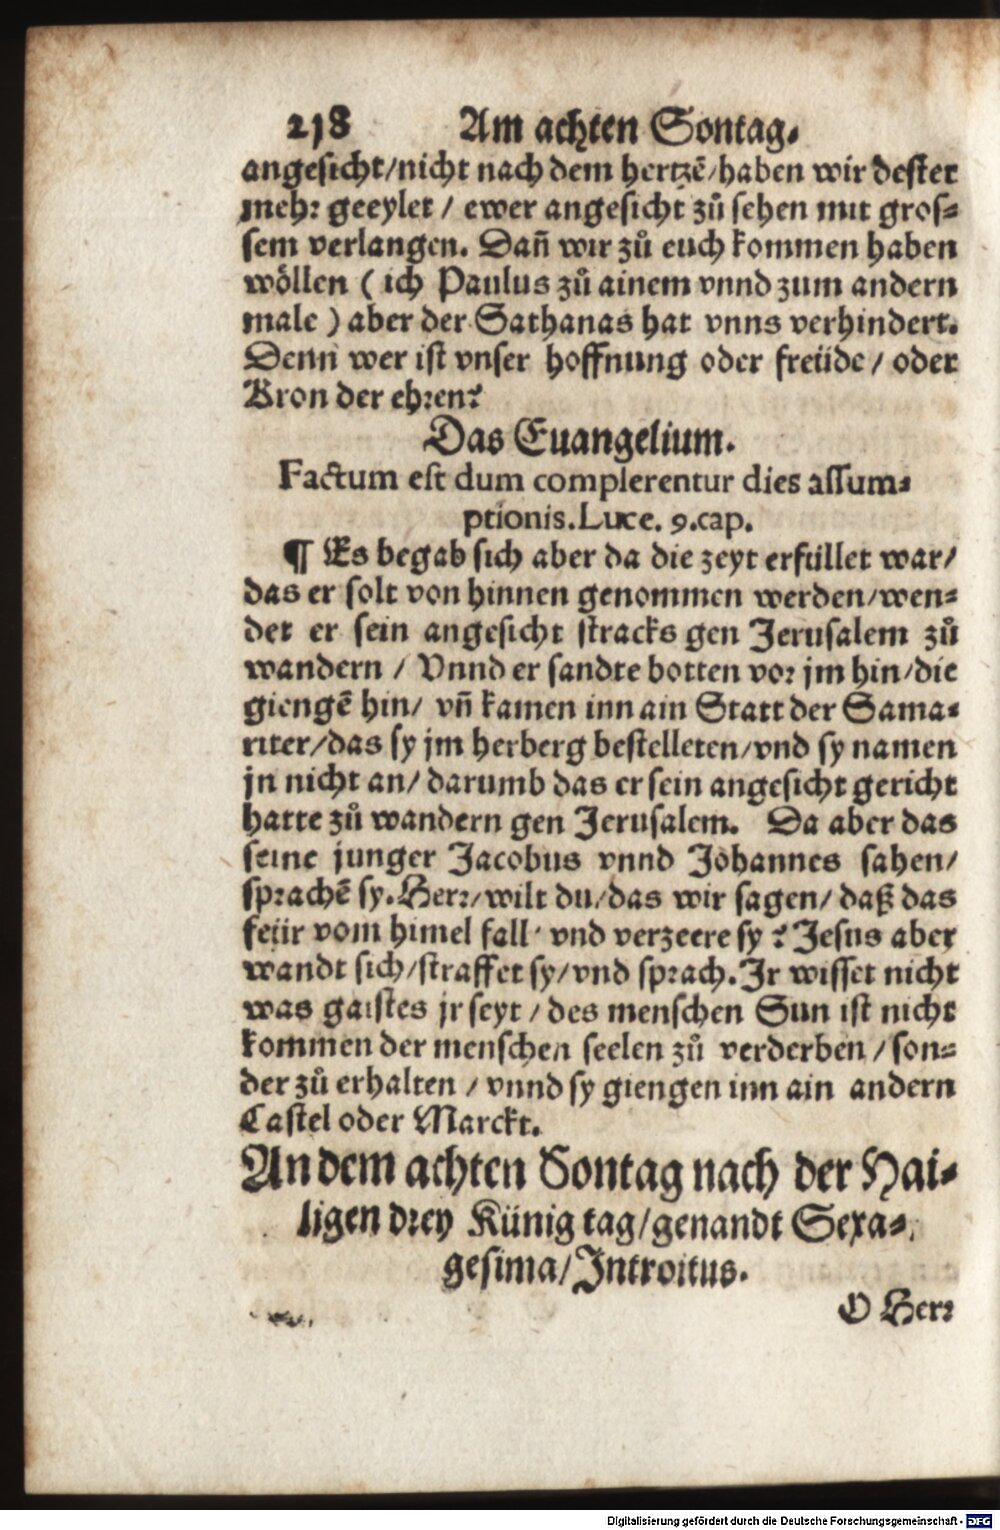 218 Am achten Sontag.
angesicht/nicht nach dem hertzē/haben wir dester
mehr geeylet / ewer angesicht zů sehen mit gros⸗
sem verlangen. Dañ wir zů euch kommen haben
wöllen ( ich Paulus zů ainem vnnd zum andern
male ) aber der Sathanas hat vnns verhindert.
Denn wer ist vnser hoffnung oder freüde / oder
Kron der ehren?
Das Euangelium.
Factum est dum complerentur dies assum⸗
ptionis. Luce. 9. cap.
¶ Es begab sich aber da die zeyt erfüllet war/
das er solt von hinnen genommen werden/wen⸗
det er sein angesicht stracks gen Jerusalem zů
wandern / Vnnd er sandte botten vor jm hin/die
giengē hin/ vñ kamen inn ain Statt der Sama⸗
riter/das sy jm herberg bestelleten/vnd sy namen
jn nicht an/ darumb das er sein angesicht gericht
hatte zů wandern gen Jerusalem. Da aber das
seine junger Jacobus vnnd Johannes sahen/
sprachē sy. Herr/wilt du/das wir sagen/ daß das
feür vom himel fall/ vnd verzeere sy? Jesus aber
wandt sich/straffet sy/vnd sprach. Jr wisset nicht
was gaistes jr seyt / des menschen Sun ist nicht
kommen der menschen seelen zů verderben / son⸗
der zů erhalten / vnnd sy giengen inn ain andern
Castel oder Marckt.
An dem achten Sontag nach der Hai⸗
ligen drey Künig tag/genandt Sexa⸗
gesima/Introitus.
O Herr
Digitalisierung gefördert durch die Deutsche Forschungsgemeinschaft - DFG